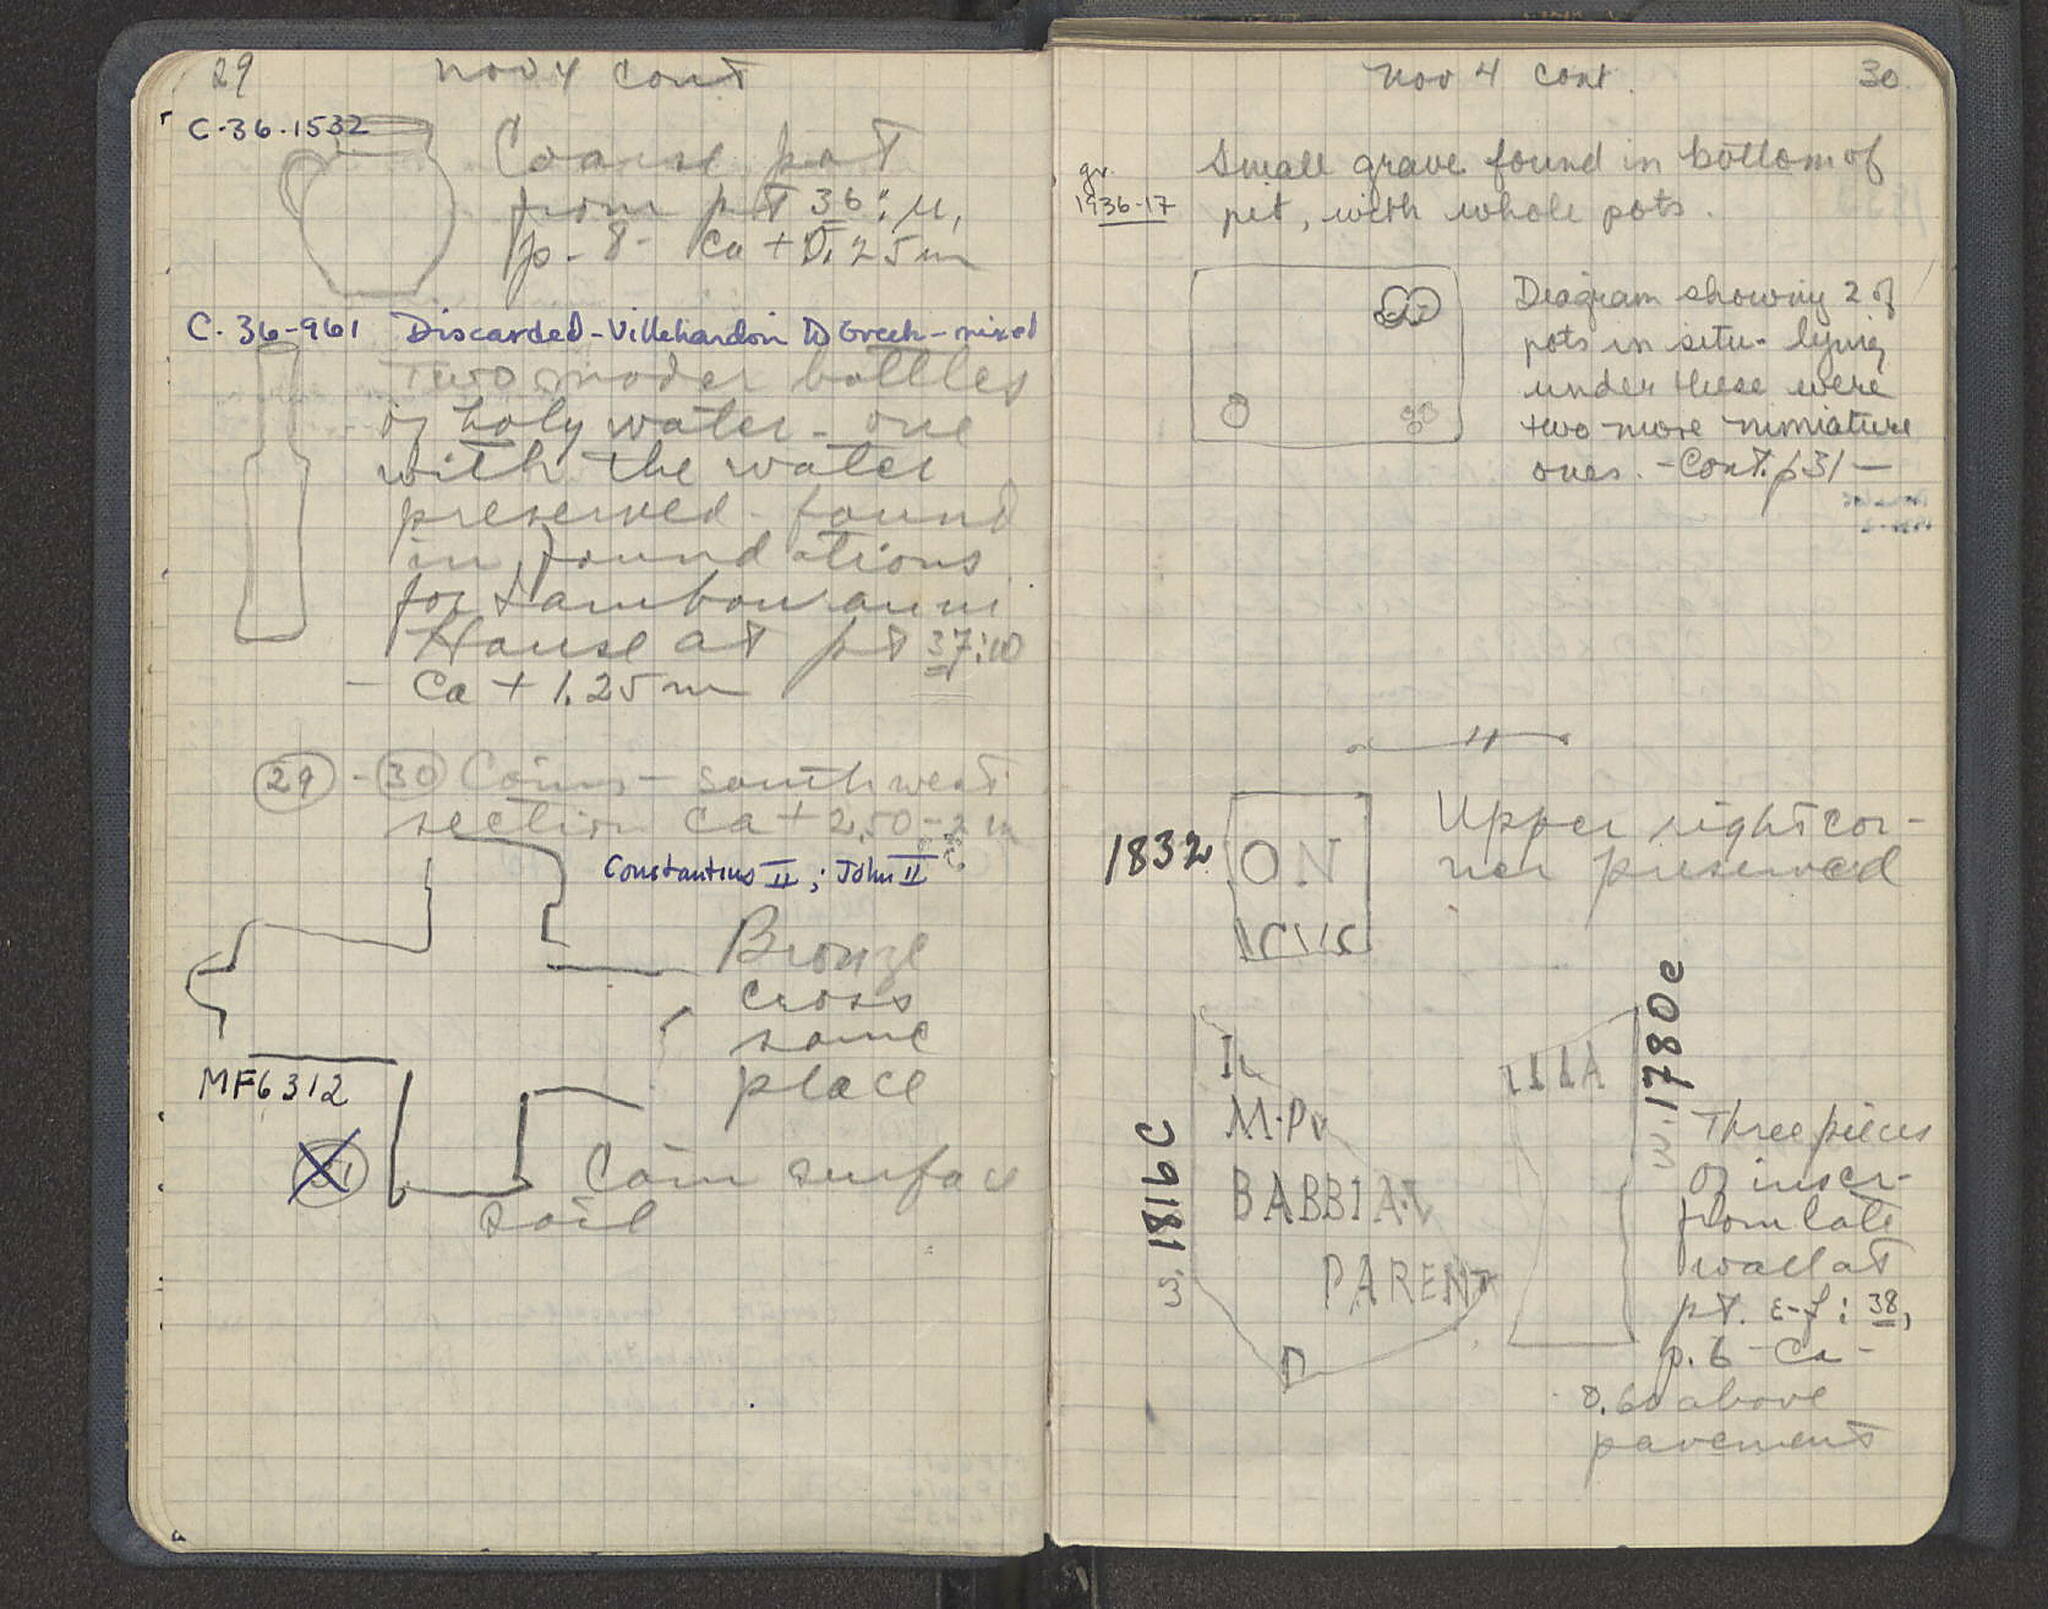 29 Nov 4 cont
C-36-1532
Coarse pot
from pt 36:μ,
p-8- ca + 0.25m
C-36-961 Discarded-Villehardouin to Greek-mixed
Two moder bottles
of holy water - one
with the water
preserved - found
in foundations
for
House at pt 37:
- Ca + 1.25m
29 - 30 Coins - southwest
section ca + 2.50-2m
Constantius II; John II
Bronze
cross
same
place
MF6312
31 Coin surface
soil
Nov 4 cont. 30
gr.
1936-17
Small grave found in bottom of
pit, with whole pots.
Diagram showing 2 of
pots in situ - lying
under these were
two more miniature
ones. - Cont. p31 -
1832
ON
Upper right cor-
ner preserved
w. 1816 c
M·P
BABBIA
PARENT
w. 1780 e
Three pieces
of inscr-
from late
wall at
pt. ε-ζ: 38,
p. 6 - Ca -
0.60 above
pavement